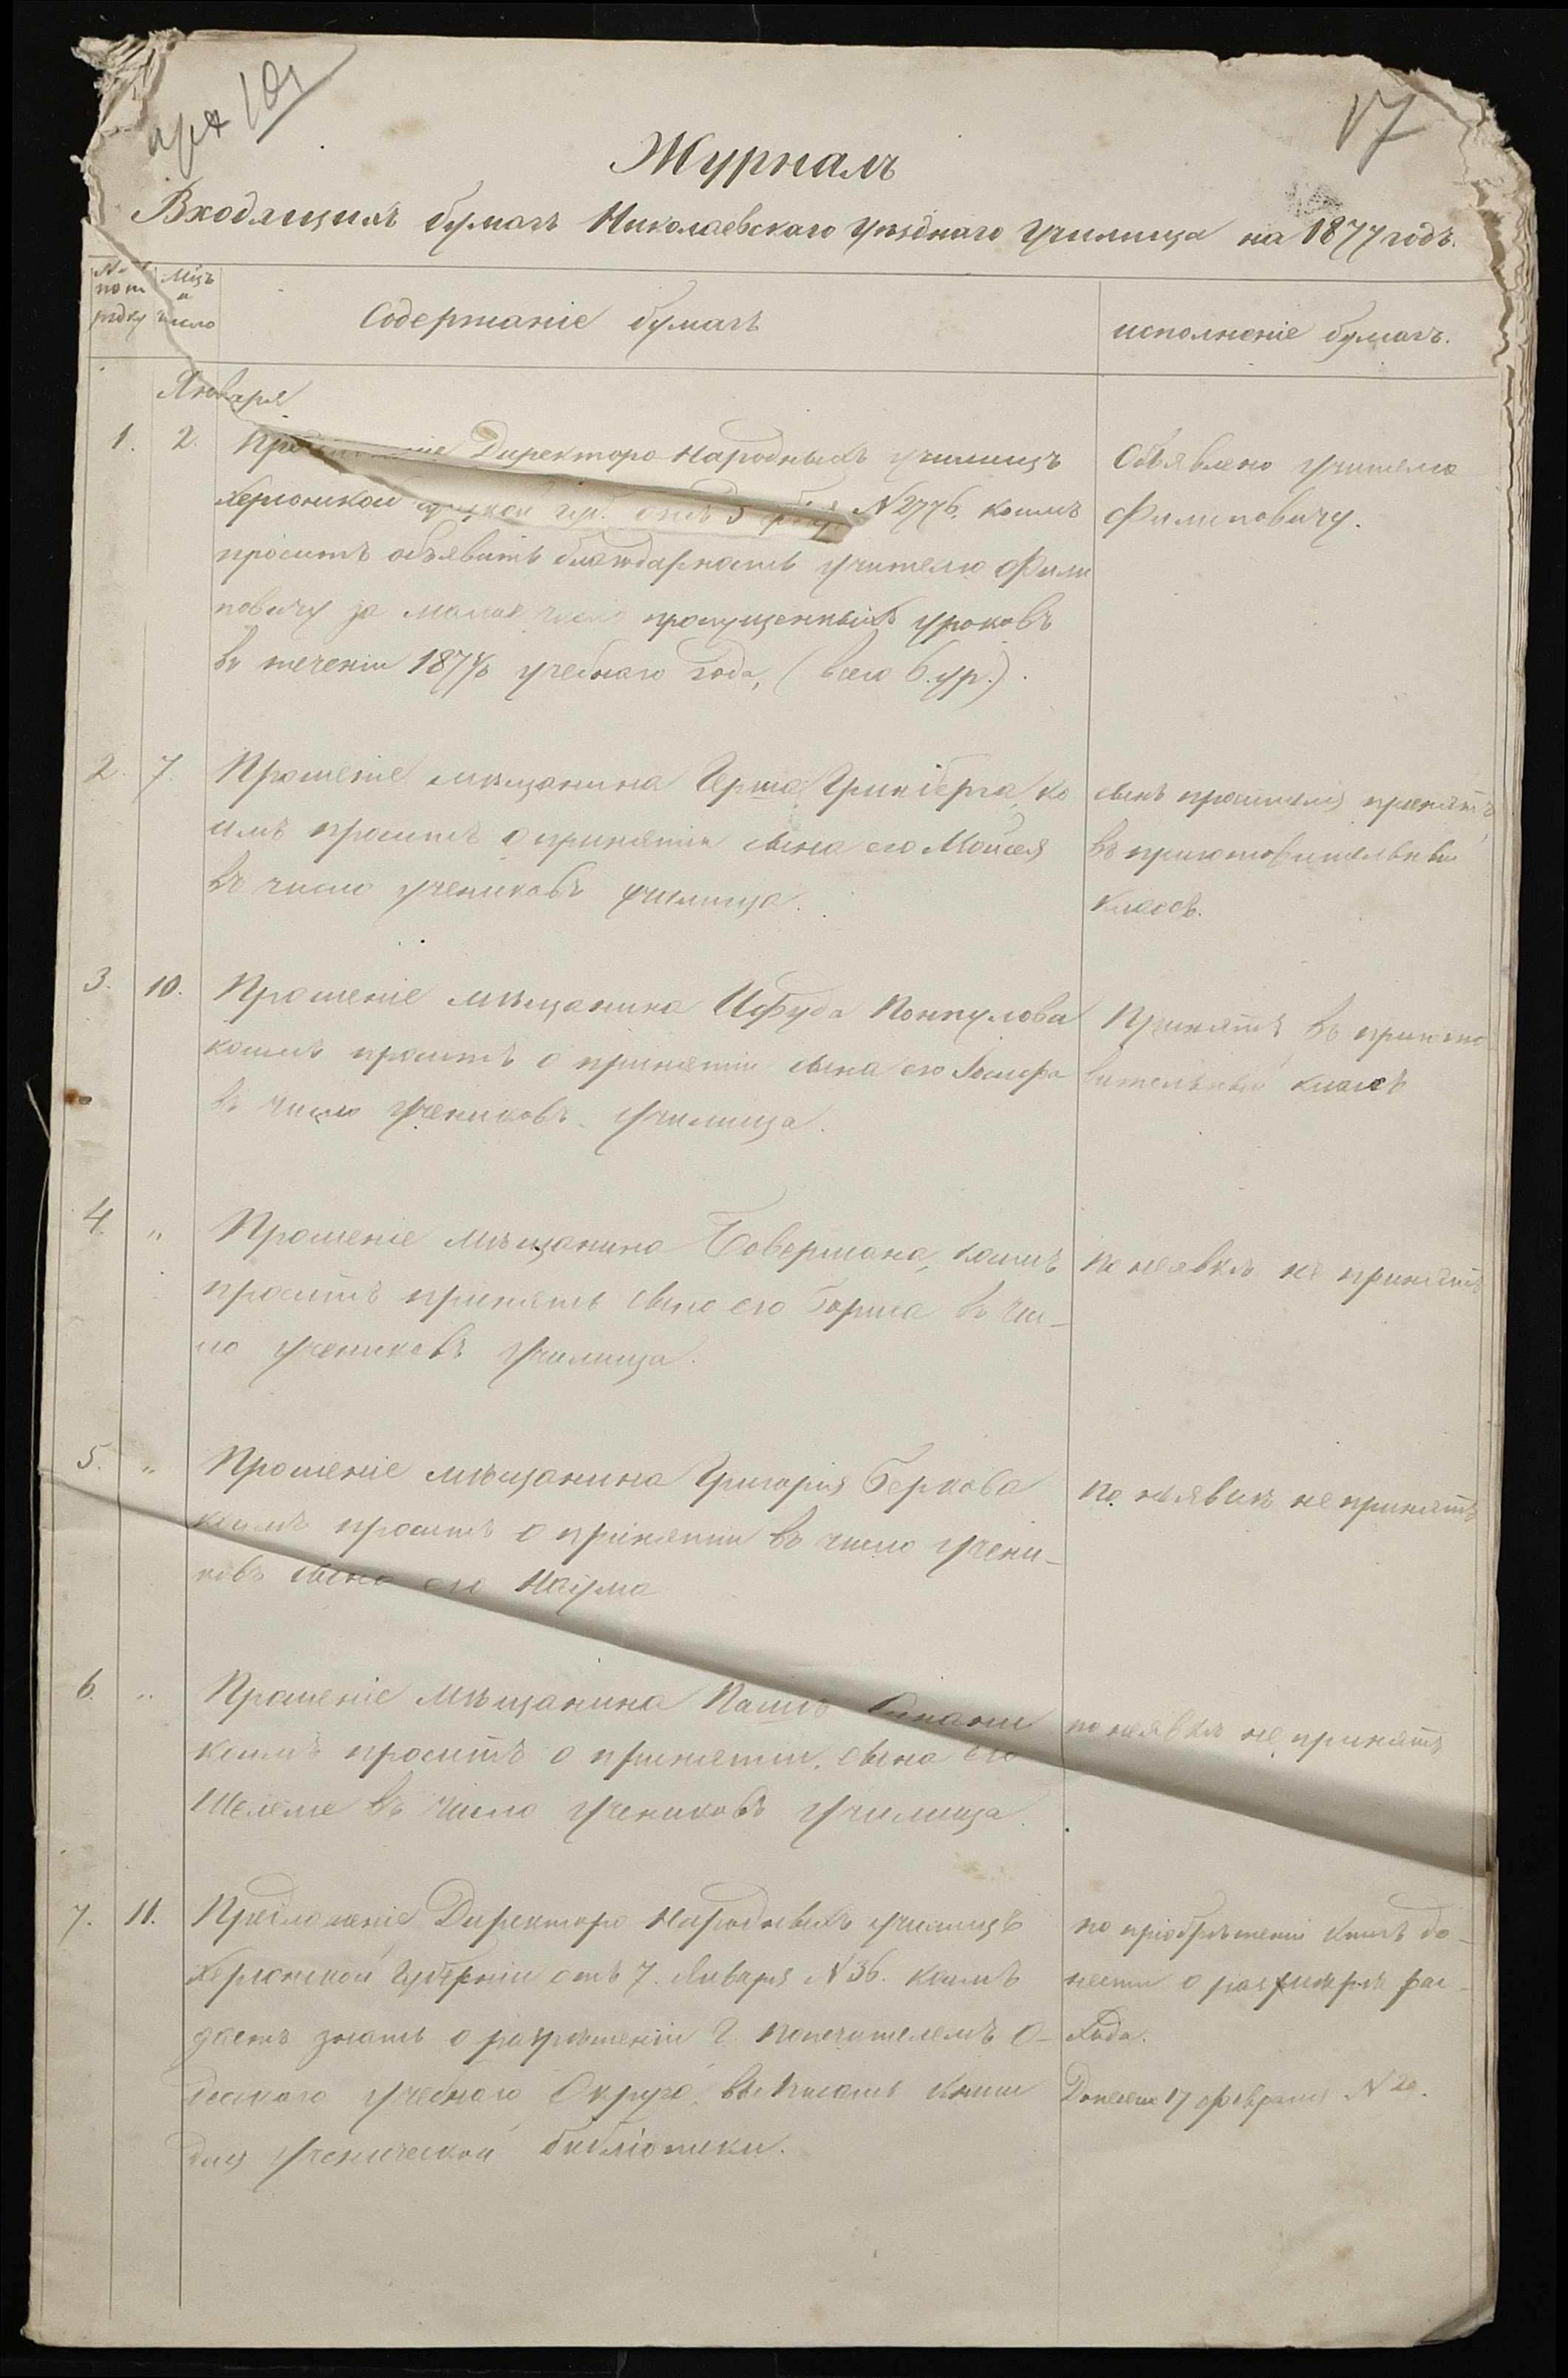 17
Журналъ
Входящихъ бумагъ Николаевскаго Уѣзднаго Училища на 1877 годъ.
№№ по по рядку
Мцъ и число
Содержаніе бумагъ
исполненіе бумагъ.
Января
1. 2. Директора Народныхъ училищъ
Херсонской губ. отъ N 2776, коимъ
проситъ объявить благодарность учителю Фили
повичу за малое число пропущенныхъ уроковъ
въ теченіи 1875/6 учебнаго года, (всего 6. ур.).
Объявлено учителю
Филиповичу.
2. 7. Прошеніе мѣщанина Герша Гринберга, ко
имъ проситъ о принятіи сына его Моисея
въ число учениковъ училища.
сынъ просителя принятъ
въ приготовительный
классъ.
3. 10. Прошеніе мѣщанина
коимъ проситъ о принятіи сына его Іосифа
въ число учениковъ училища.
Принятъ въ пригото
вительный классъ
4. " Прошеніе мѣщанина Бовермана, коимъ
проситъ принять сына его Бориса въ чи-
ло учениковъ училища.
по неявкѣ не принятъ
5. " Прошеніе мѣщанина Григорія Беркова
коимъ проситъ о принятіи въ число учени-
ковъ сына его Наума
по неявкѣ не принятъ
6. " Прошеніе мѣщанина
коимъ проситъ о принятіи, сына его
Шелеме въ число учениковъ училища.
по неявкѣ не принятъ
7. 11. Предложеніе Директора Народныхъ училищъ
Херсонской Губерніи отъ 7. Января N 36. коимъ
даетъ знать о разрѣшеніи Г. Попечителемъ О-
десскаго учебнаго Округа, выписать книги
для ученической библіотеки.
по пріобрѣтеніи книгъ до-
нести о размѣрѣ рас-
хода.
Донесено 17 февраля N 20.